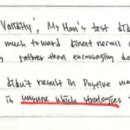 Validity', Ms Han's test did
much toward direct recall o
, rather than encouraging de
didn't result in positive was
is unsure which strategies